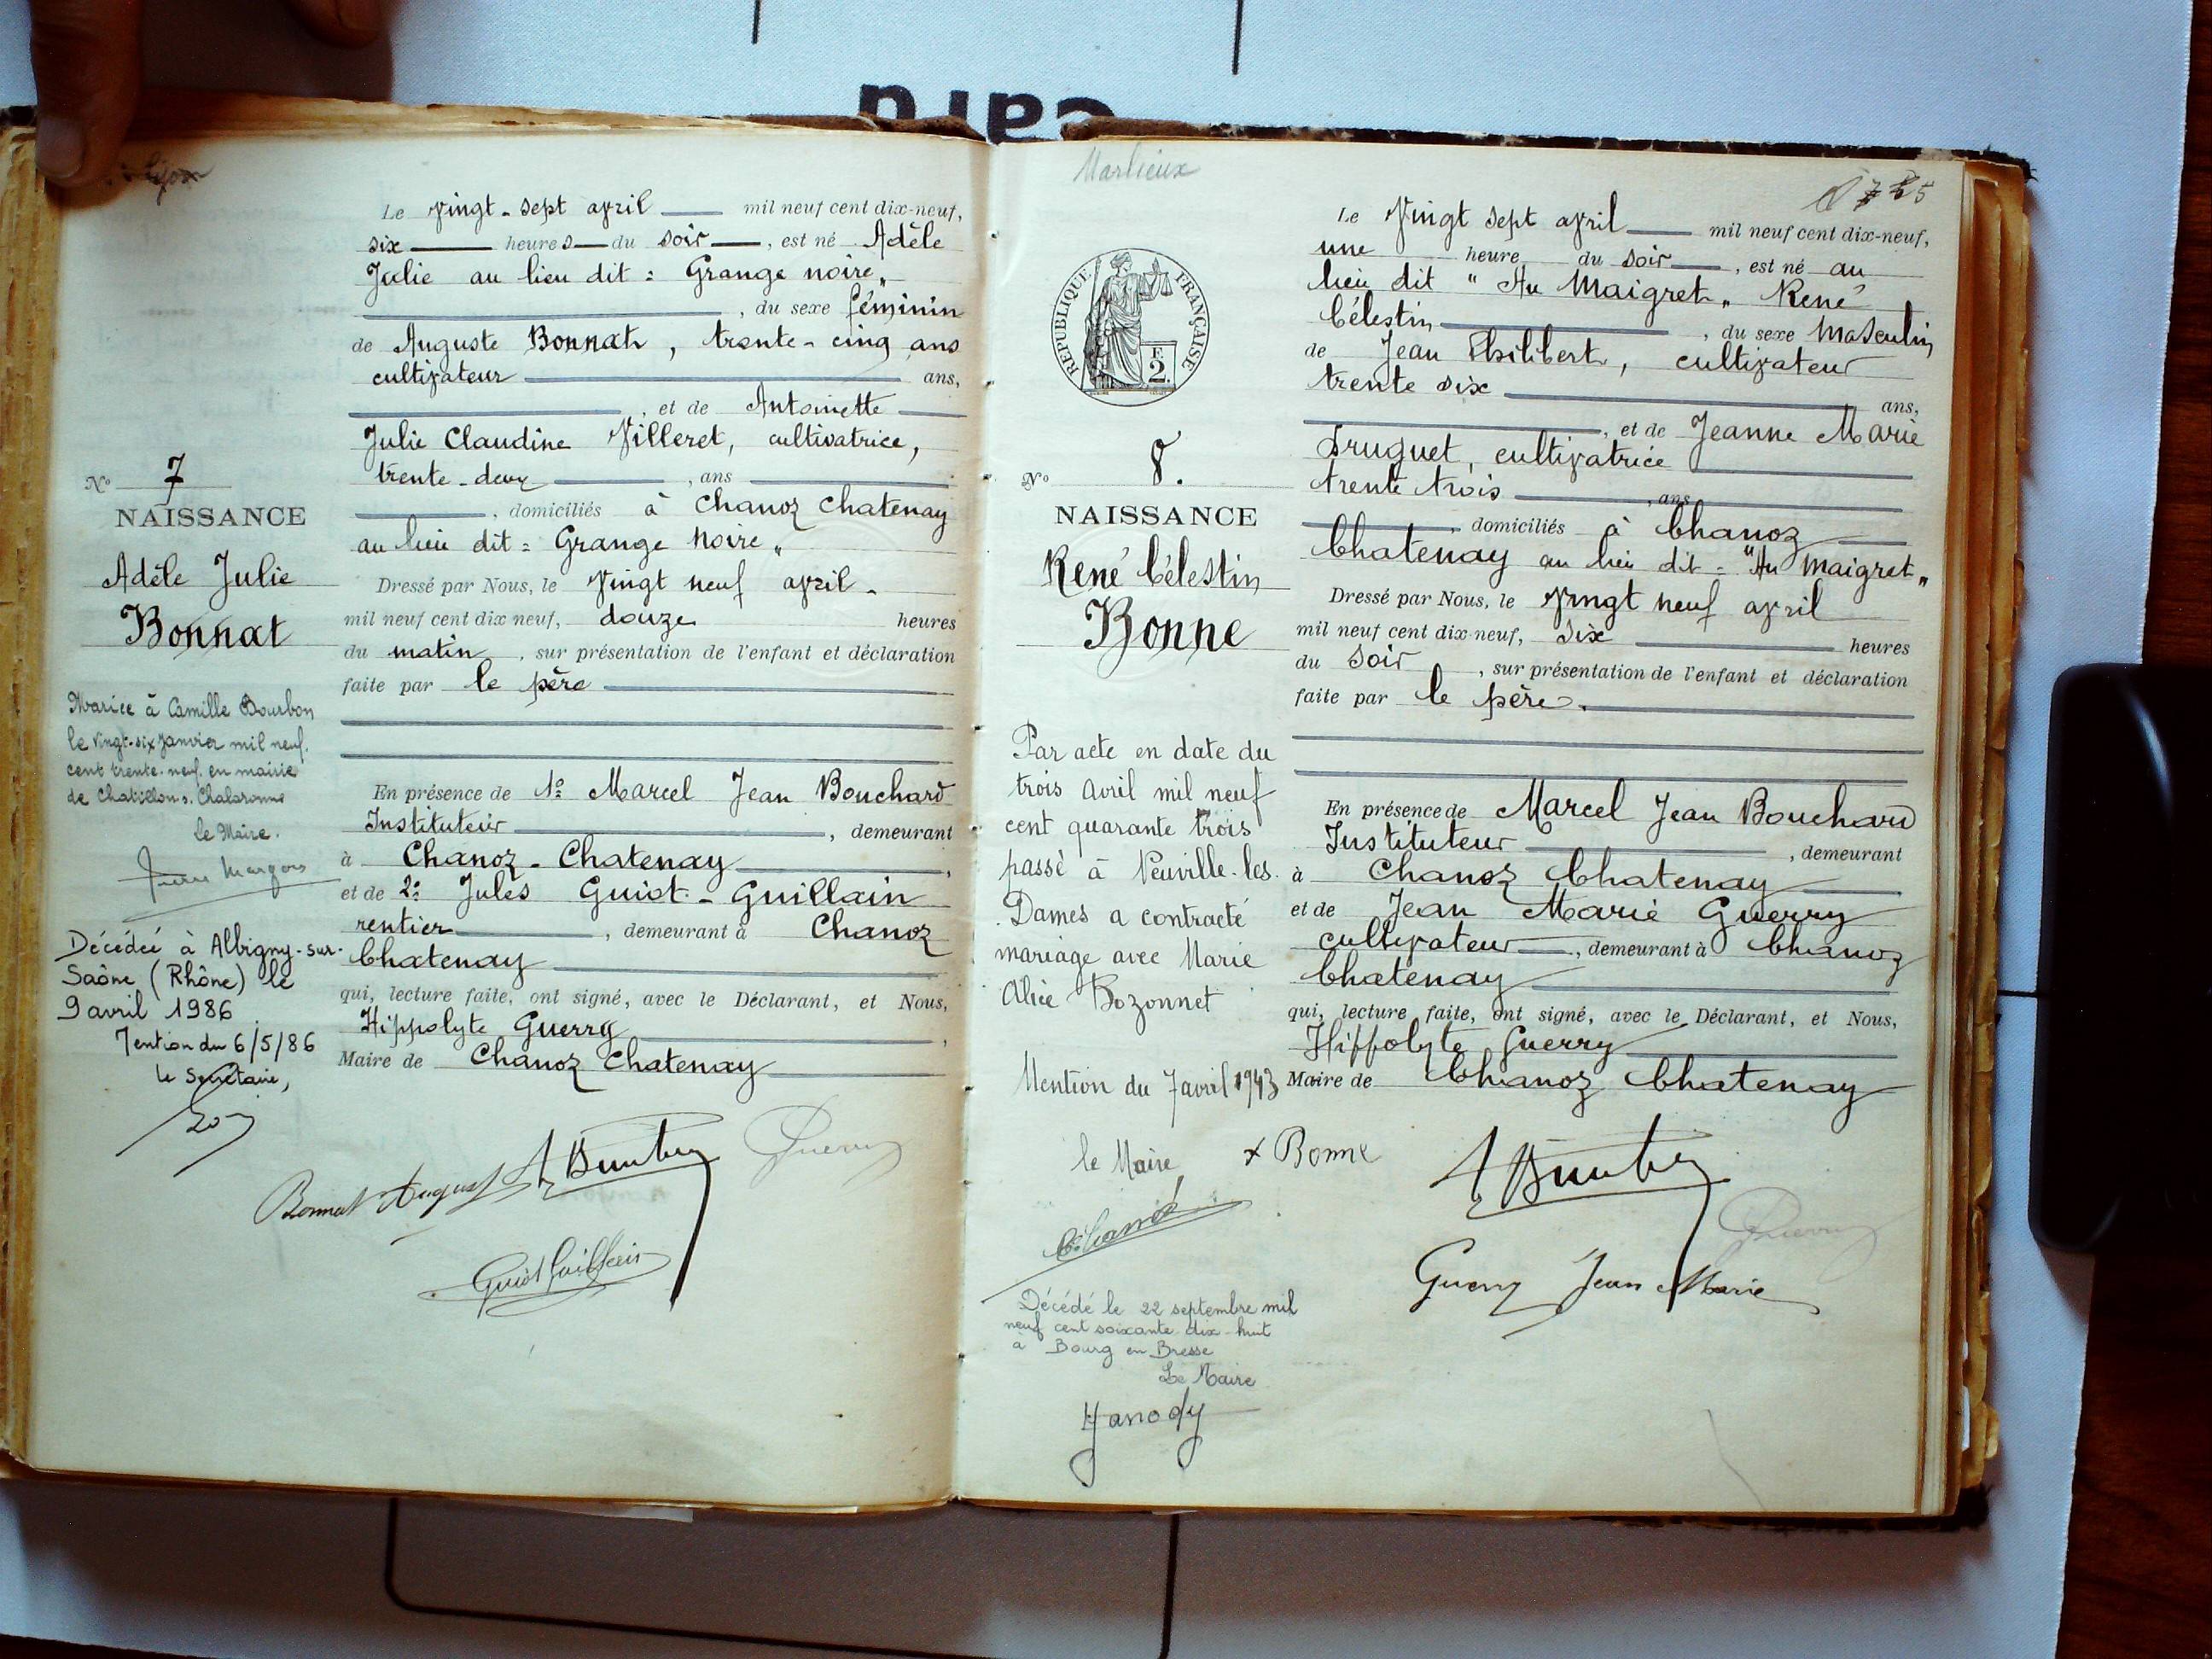 card
Lyon
Le vingt-sept avril mil neuf cent dix-neuf,
six heures du soir, est né Adèle
Julie au lieu dit : Grange noire "
, du sexe féminin
de Auguste Bonnat, trente-cinq ans
cultivateur ans,
, et de Antoinette
Julie Claudine Villeret, cultivatrice,
trente-deux, ans
, domiciliés à Chanoz Chatenay
au lieu dit : Grange Noire "
Dressé par Nous, le vingt neuf avril
mil neuf cent dix neuf, douze heures
du matin, sur présentation de l'enfant et déclaration
faite par le père
En présence de 1º Marcel Jean Bouchard
Instituteur, demeurant
à Chanoz-Chatenay,
et de 2º Jules Guiot-Guillain
rentier, demeurant à Chanoz
Chatenay
qui, lecture faite, ont signé, avec le Déclarant, et Nous,
Hippolyte Guerry,
Maire de Chanoz Chatenay
Bonnat August
Guerry
Guiot Guillain
Nº 7
NAISSANCE
Adèle Julie
Bonnat
Mariée à Camille Bourbon
le vingt-six janvier mil neuf
cent trente-neuf en mairie
de Chatillon s. Chalaronne
Le Maire.
Décédée à Albigny-sur-
Saône (Rhône) le
9 avril 1986
Mention du 6/5/86
Le Secrétaire,
Marlieux
RÉPUBLIQUE FRANÇAISE
E
2
Nº 8.
NAISSANCE
René Célestin
Bonne
Par acte en date du
trois avril mil neuf
cent quarante trois
passé à Neuville-les-
Dames a contracté
mariage avec Marie
Alice Bozonnet
Mention du 7 avril 1943
le Maire
Décédé le 22 septembre mil
neuf cent soixante dix-huit
à Bourg en Bresse
Le Maire
Janody
Le vingt sept avril mil neuf cent dix-neuf,
une heure du soir, est né au
lieu dit "Au Maigret" René
Célestin, du sexe masculin
de Jean Philibert, cultivateur
trente six ans,
, et de Jeanne Marie
Druguet, cultivatrice
trente trois, ans
, domiciliés à Chanoz
Chatenay au lieu dit : "Au Maigret"
Dressé par Nous, le vingt neuf avril
mil neuf cent dix-neuf, six heures
du soir, sur présentation de l'enfant et déclaration
faite par le père.
En présence de Marcel Jean Bouchard
Instituteur, demeurant
à Chanoz Chatenay
et de Jean Marie Guerry
cultivateur, demeurant à Chanoz
Chatenay
qui, lecture faite, ont signé, avec le Déclarant, et Nous,
Hippolyte Guerry
Maire de Chanoz Chatenay
x Bonne
Guerry
Guerry Jean Marie